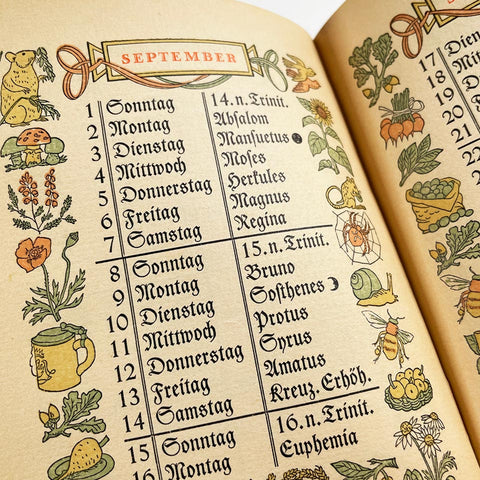 SEPTEMBER
1 Sonntag 14. n. Trinit.
2 Montag Absalom
3 Dienstag Mansuetus
4 Mittwoch Moses
5 Donnerstag Herkules
6 Freitag Magnus
7 Samstag Regina
8 Sonntag 15. n. Trinit.
9 Montag Bruno
10 Dienstag Sosthenes
11 Mittwoch Protus
12 Donnerstag Syrus
13 Freitag Amatus
14 Samstag Kreuz. Erhöh.
15 Sonntag 16. n. Trinit.
16 Montag Euphemia
17 Die
18 Mit
19
20
21
22